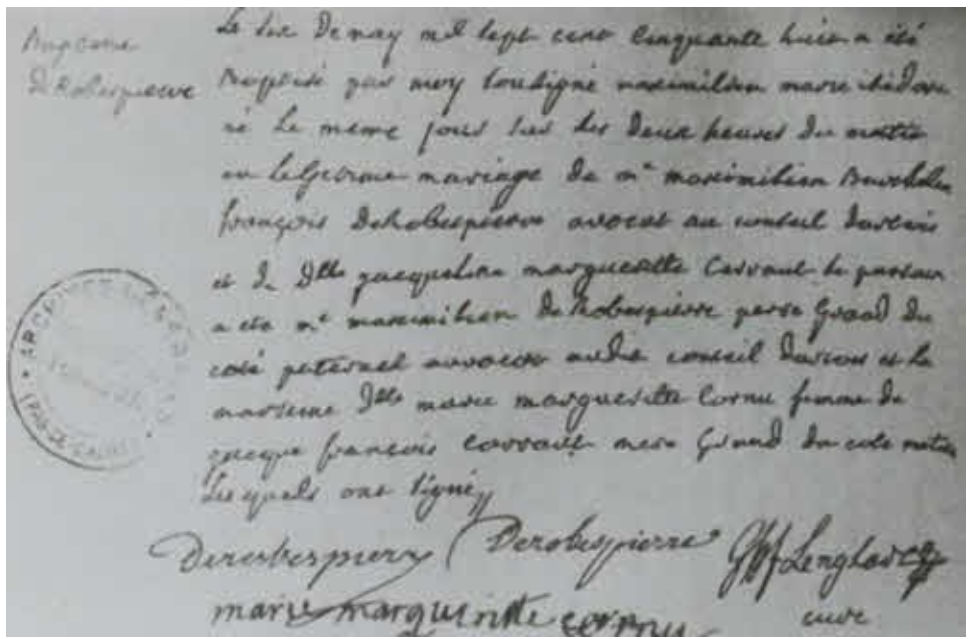 Bapteme
de Robespierre
Le six de may mil sept cent cinquante huit a été
Baptisé par moy soussigné maximilien marie isidore
né le meme jour sur les deux heures du matin
en legitime mariage de me maximilien Barthelem
françois deRobespierre avocat au conseil dartois
et de Dlle jacqueline marguerite Carraut le parrain
a ete me maximilien de Robespierre pere Grand du
coté paternel avocat audit conseil dartois et la
marienne Dlle marie marguerite Cornu femme de
jacque françois carraut mere Grand du coté mater
lesquels ont signé
Derobespierre Derobespierre Lenglart
marie marguerite cornu curé
ARCHIVES